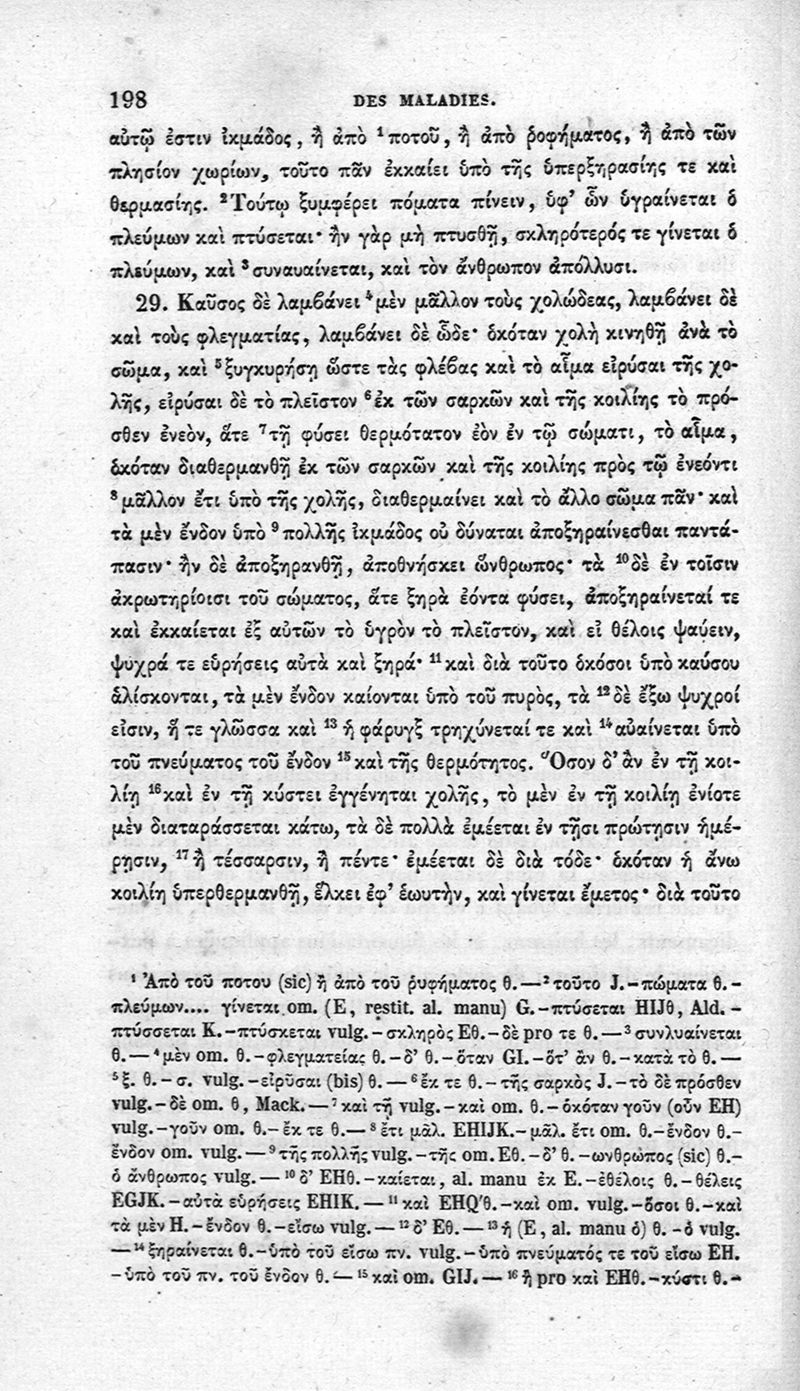 198 DES MALADIES.
αὐτῷ ἐστιν ἰκμάδος, ἢ ἀπὸ ¹ποτοῦ, ἢ ἀπὸ ῥοφήματος, ἢ ἀπὸ τῶν
πλησίον χωρίων, τοῦτο πᾶν ἐκκαίει ὑπὸ τῆς ὑπερξηρασίης τε καὶ
θερμασίης. ²Τούτῳ ξυμφέρει πόματα πίνειν, ὑφ’ ὧν ὑγραίνεται ὁ
πλεύμων καὶ πτύσεται· ἢν γὰρ μὴ πτυσθῇ, σκληρότερός τε γίνεται ὁ
πλεύμων, καὶ ³συναυαίνεται, καὶ τὸν ἄνθρωπον ἀπόλλυσι.
29. Καῦσος δὲ λαμϐάνει ⁴μὲν μᾶλλον τοὺς χολώδεας, λαμϐάνει δὲ
καὶ τοὺς φλεγματίας, λαμϐάνει δὲ ὧδε· ὁκόταν χολὴ κινηθῇ ἀνὰ τὸ
σῶμα, καὶ ⁵ξυγκυρήσῃ ὥστε τὰς φλέϐας καὶ τὸ αἷμα εἰρύσαι τῆς χο-
λῆς, εἰρύσαι δὲ τὸ πλεῖστον ⁶ἐκ τῶν σαρκῶν καὶ τῆς κοιλίης τὸ πρό-
σθεν ἐνεὸν, ἅτε ⁷τῇ φύσει θερμότατον ἐὸν ἐν τῷ σώματι, τὸ αἷμα,
ὁκόταν διαθερμανθῇ ἐκ τῶν σαρκῶν καὶ τῆς κοιλίης πρὸς τῷ ἐνεόντι
⁸μᾶλλον ἔτι ὑπὸ τῆς χολῆς, διαθερμαίνει καὶ τὸ ἄλλο σῶμα πᾶν· καὶ
τὰ μὲν ἔνδον ὑπὸ ⁹πολλῆς ἰκμάδος οὐ δύναται ἀποξηραίνεσθαι παντά-
πασιν· ἢν δὲ ἀποξηρανθῇ, ἀποθνήσκει ὥνθρωπος· τὰ ¹⁰δὲ ἐν τοῖσιν
ἀκρωτηρίοισι τοῦ σώματος, ἅτε ξηρὰ ἐόντα φύσει, ἀποξηραίνεταί τε
καὶ ἐκκαίεται ἐξ αὐτῶν τὸ ὑγρὸν τὸ πλεῖστον, καὶ εἰ θέλοις ψαύειν,
ψυχρά τε εὑρήσεις αὐτὰ καὶ ξηρά· ¹¹καὶ διὰ τοῦτο ὁκόσοι ὑπὸ καύσου
ἁλίσκονται, τὰ μὲν ἔνδον καίονται ὑπὸ τοῦ πυρὸς, τὰ ¹²δὲ ἔξω ψυχροί
εἰσιν, ἥ τε γλῶσσα καὶ ¹³ἡ φάρυγξ τρηχύνεταί τε καὶ ¹⁴αὐαίνεται ὑπὸ
τοῦ πνεύματος τοῦ ἔνδον ¹⁵καὶ τῆς θερμότητος. Ὅσον δ’ ἂν ἐν τῇ κοι-
λίῃ ¹⁶καὶ ἐν τῇ κύστει ἐγγένηται χολῆς, τὸ μὲν ἐν τῇ κοιλίῃ ἐνίοτε
μὲν διαταράσσεται κάτω, τὰ δὲ πολλὰ ἐμέεται ἐν τῇσι πρώτῃσιν ἡμέ-
ρῃσιν, ¹⁷ἢ τέσσαρσιν, ἢ πέντε· ἐμέεται δὲ διὰ τόδε· ὁκόταν ἡ ἄνω
κοιλίη ὑπερθερμανθῇ, ἕλκει ἐφ’ ἑωυτὴν, καὶ γίνεται ἔμετος· διὰ τοῦτο
¹ Ἀπὸ τοῦ ποτου (sic) ἢ ἀπὸ τοῦ ῥυφήματος θ. — ²τοῦτο J. - πώματα θ. -
πλεύμων.... γίνεται om. (E, restit. al. manu) G. - πτύσεται HIJθ, Ald. -
πτύσσεται K. - πτύσκεται vulg. - σκληρὸς Eθ. - δὲ pro τε θ. — ³συνλυαίνεται
θ. — ⁴μὲν om. θ. - φλεγματείας θ. - δ’ θ. - ὅταν GI. - ὅτ’ ἂν θ. - κατὰ τὸ θ. —
⁵ξ. θ. - σ. vulg. - εἰρῦσαι (bis) θ. — ⁶ἔκ τε θ. - τῆς σαρκὸς J. - τὸ δὲ πρόσθεν
vulg. - δὲ om. θ, Mack. — ⁷καὶ τῇ vulg. - καὶ om. θ. - ὁκόταν γοῦν (οὖν EH)
vulg. - γοῦν om. θ. - ἔκ τε θ. — ⁸ἔτι μᾶλ. EHIJK. - μᾶλ. ἔτι om. θ. - ἔνδον θ. -
ἔνδον om. vulg. — ⁹τῆς πολλῆς vulg. - τῆς om. Eθ. - δ’ θ. - ωνθρὼπος (sic) θ. -
ὁ ἄνθρωπος vulg. — ¹⁰δ’ EHθ. - καίεται, al. manu ἐκ E. - ἐθέλοις θ. - θέλεις
EGJK. - αὐτὰ εὑρήσεις EHIK. — ¹¹καὶ EHQ′θ. - καὶ om. vulg. - ὅσοι θ. - καὶ
τὰ μὲν H. - ἔνδον θ. - εἴσω vulg. — ¹²δ’ Eθ. — ¹³ἡ (E, al. manu ὁ) θ. - ὁ vulg.
— ¹⁴ξηραίνεται θ. - ὑπὸ τοῦ εἴσω πν. vulg. - ὑπὸ πνεύματός τε τοῦ εἴσω EH.
- ὑπὸ τοῦ πν. τοῦ ἔνδον θ. — ¹⁵καὶ om. GIJ. — ¹⁶ἢ pro καὶ EHθ. - κύστι θ. -